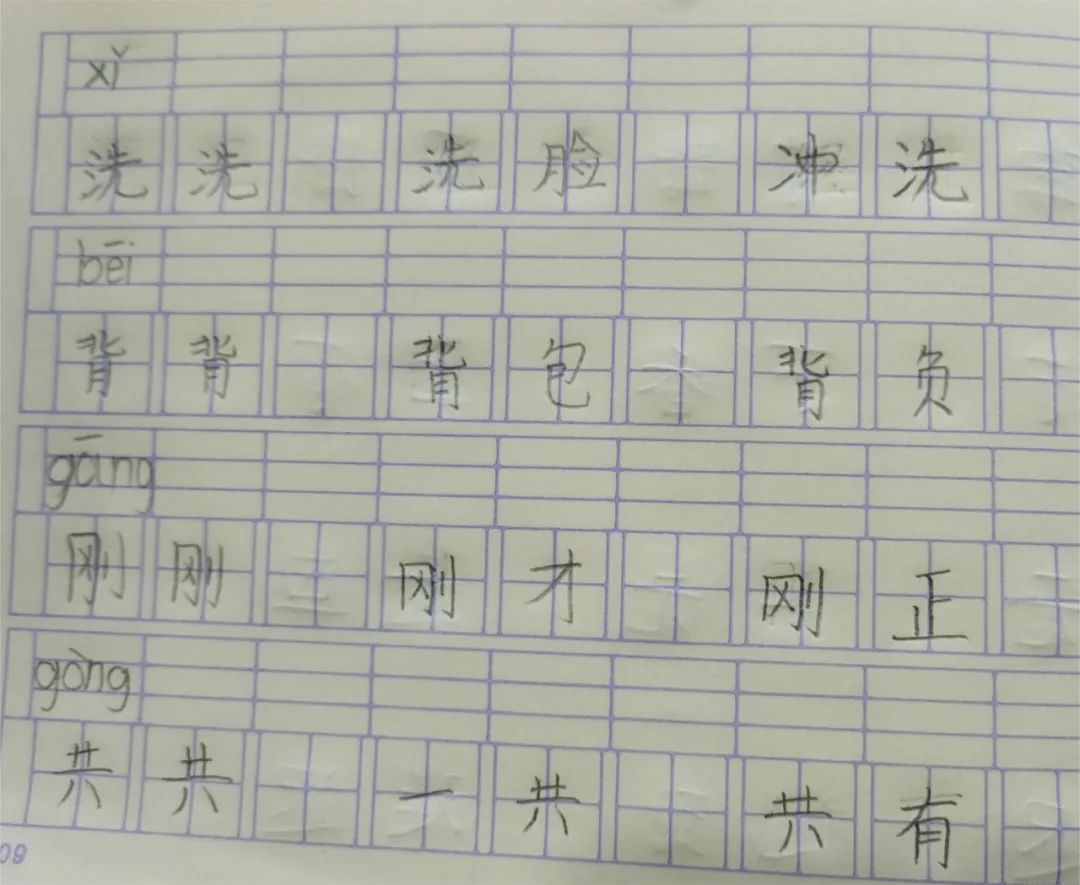 xǐ
洗 洗 洗 脸 冲 洗
bēi
背 背 背 包 背 负
gāng
刚 刚 刚 才 刚 正
gòng
共 共 一 共 共 有
09